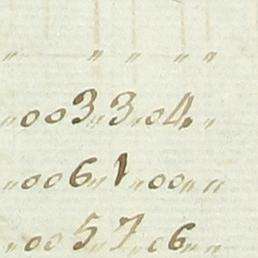 „ „ „ „ „
„003„3„04„ „
„006„1„00„ „
„005„7„06„ „